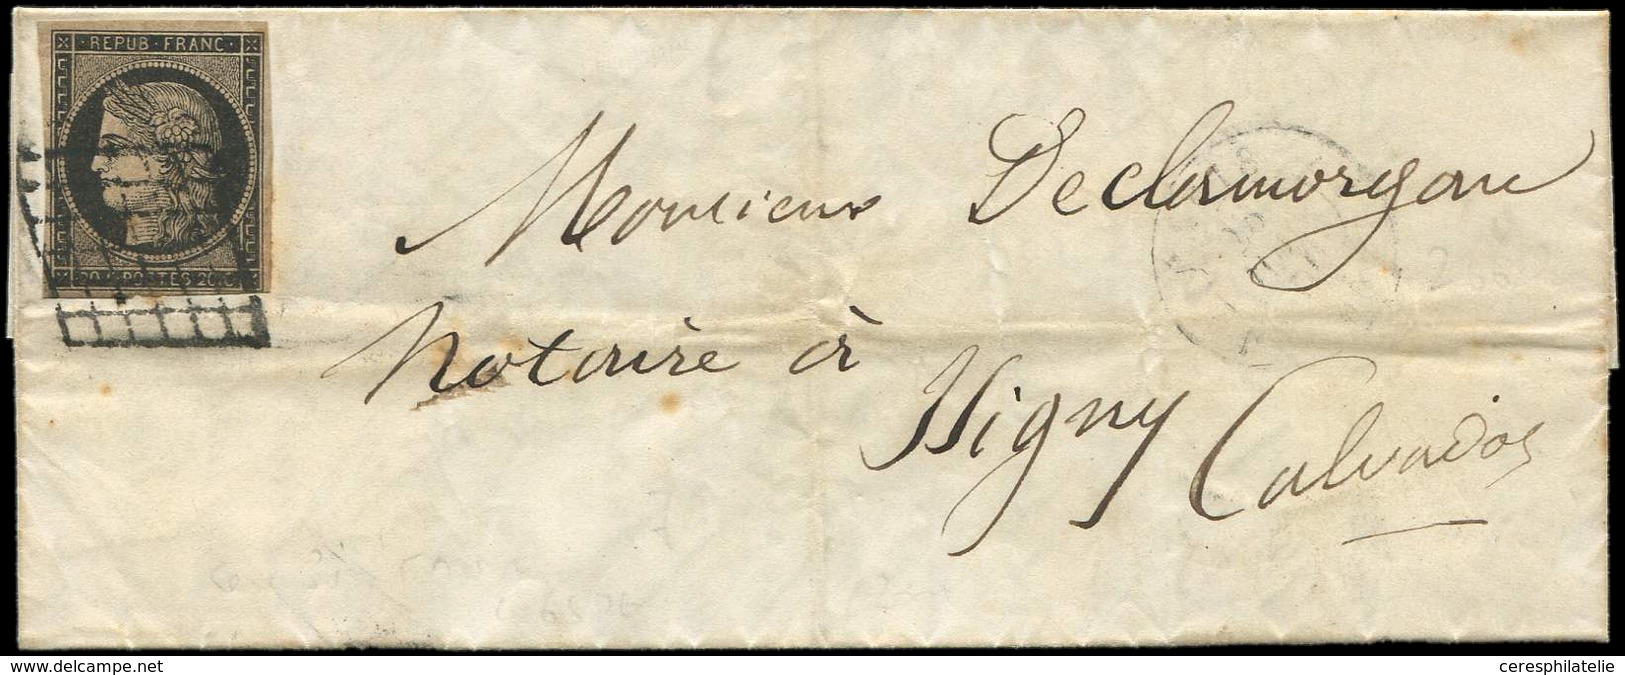 REPUB · FRANC ·
20 c POSTES 20 c
Monsieur Declamorgan
Notaire à
Isigny Calvados
www.delcampe.net
ceresphilatelie